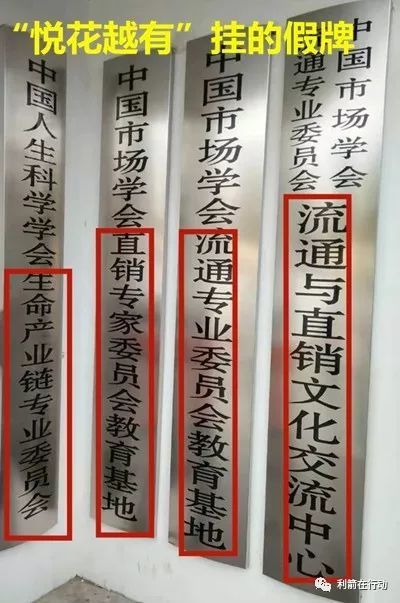 “悦花越有”挂的假牌
中国人生科学学会生命产业链专业委员会
中国市场学会直销专家委员会教育基地
中国市场学会流通专业委员会教育基地
中国市场学会
流通专业委员会
流通与直销文化交流中心
利箭在行动